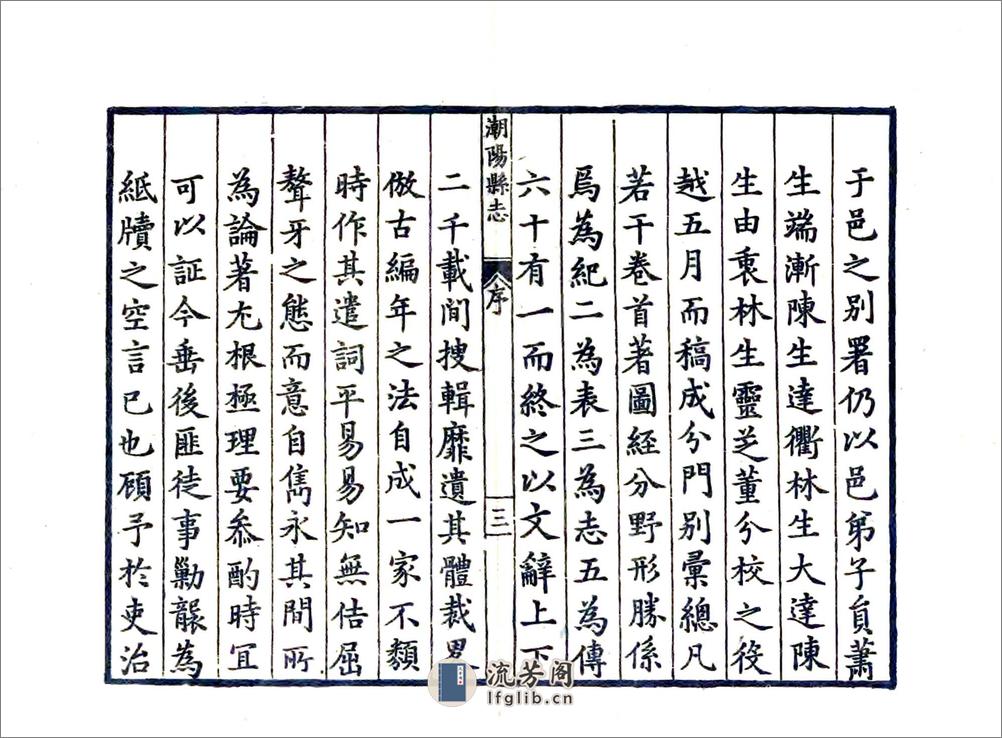 于邑之别署仍以邑弟子員蕭
生端漸陳生達衢林生大達陳
生由衷林生靈芝董分校之役
越五月而稿成分門别彙總凡
若干卷首著圖經分野形勝係
焉為紀二為表三為志五為傳
六十有一而終之以文辭上下
潮陽縣志
序
三
二千載间搜輯靡遺其體裁畧
倣古編年之法自成一家不類
時作其遣詞平易易知無佶屈
聱牙之態而意自雋永其間所
為論著尤根極理要叅酌時宜
可以証今垂後匪徒事勦襲為
紙牘之空言已也顧予於吏治
流芳阁
lfglib.cn